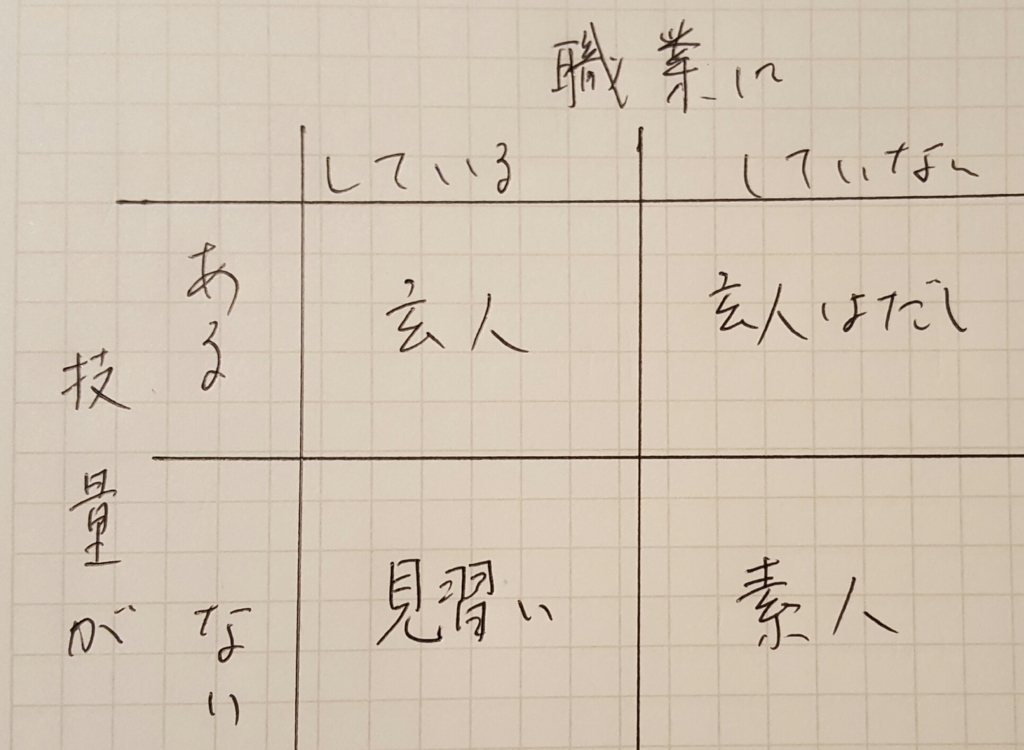 職業に
している
していない
技量が
ある
玄人
玄人はだし
ない
見習い
素人